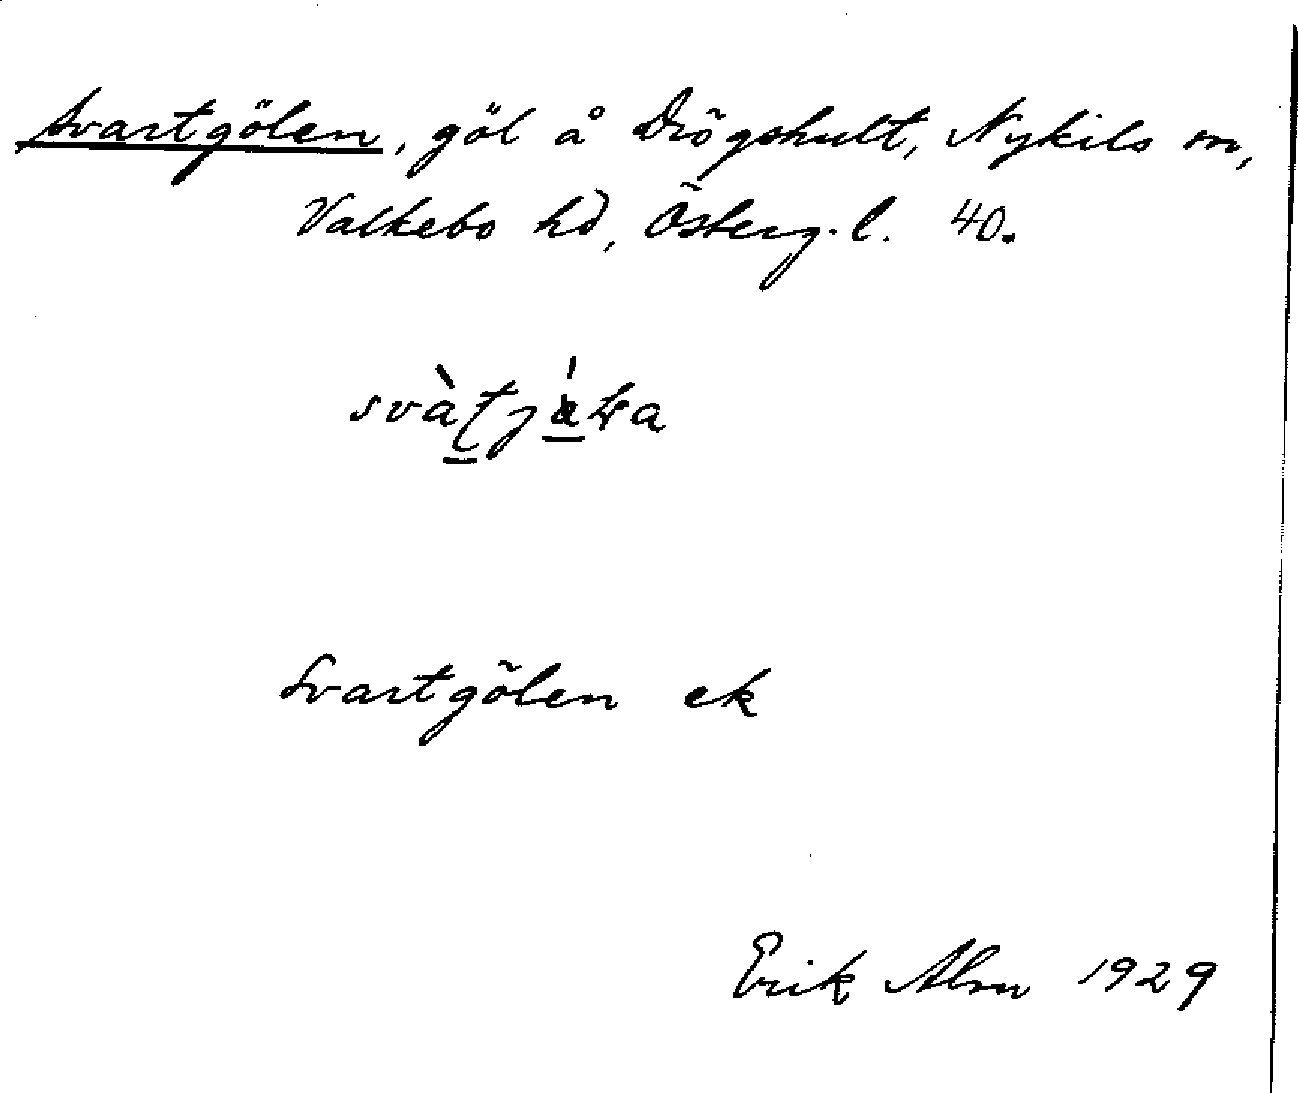 Svartgölen, göl å Drögshult, Nykils sn,
Valkebo hd, Österg. l. 40.
Svartgölen ek
Erik Alm 1929